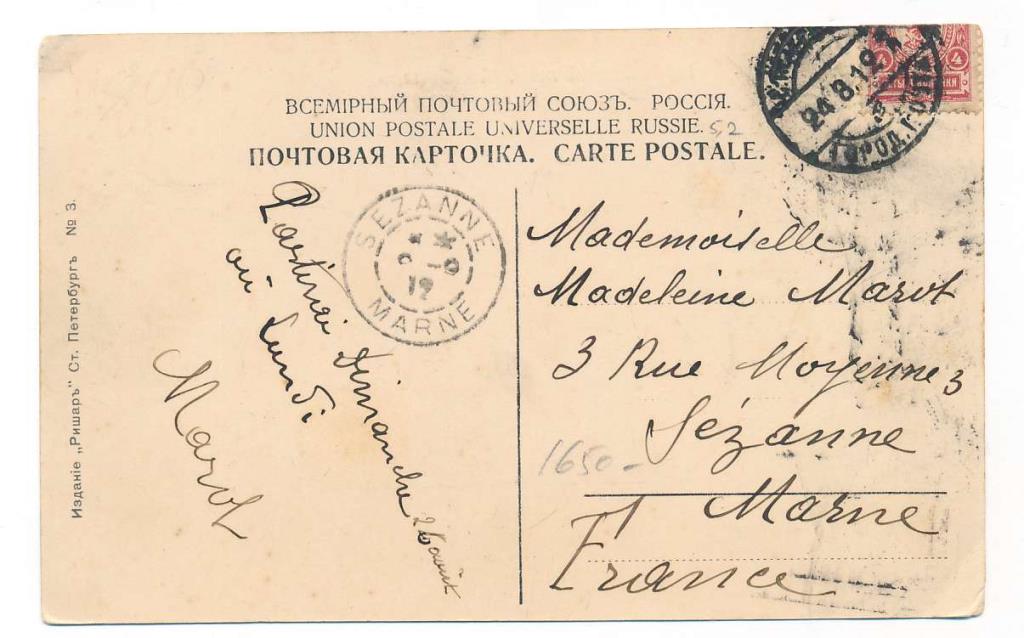 ВСЕМІРНЫЙ ПОЧТОВЫЙ СОЮЗЪ. РОССІЯ.
UNION POSTALE UNIVERSELLE RUSSIE.
52
ПОЧТОВАЯ КАРТОЧКА. CARTE POSTALE.
4
24.8.12
ГОРОД.
SEZANNE
12
MARNE
Partirai Dimanche 26 août
ou Lundi
Marot
Mademoiselle
Madeleine Marot
3 Rue Moyenne 3
Sézanne
Marne
France
1650-
Изданіе „Ришаръ" Ст. Петербургъ № 3.